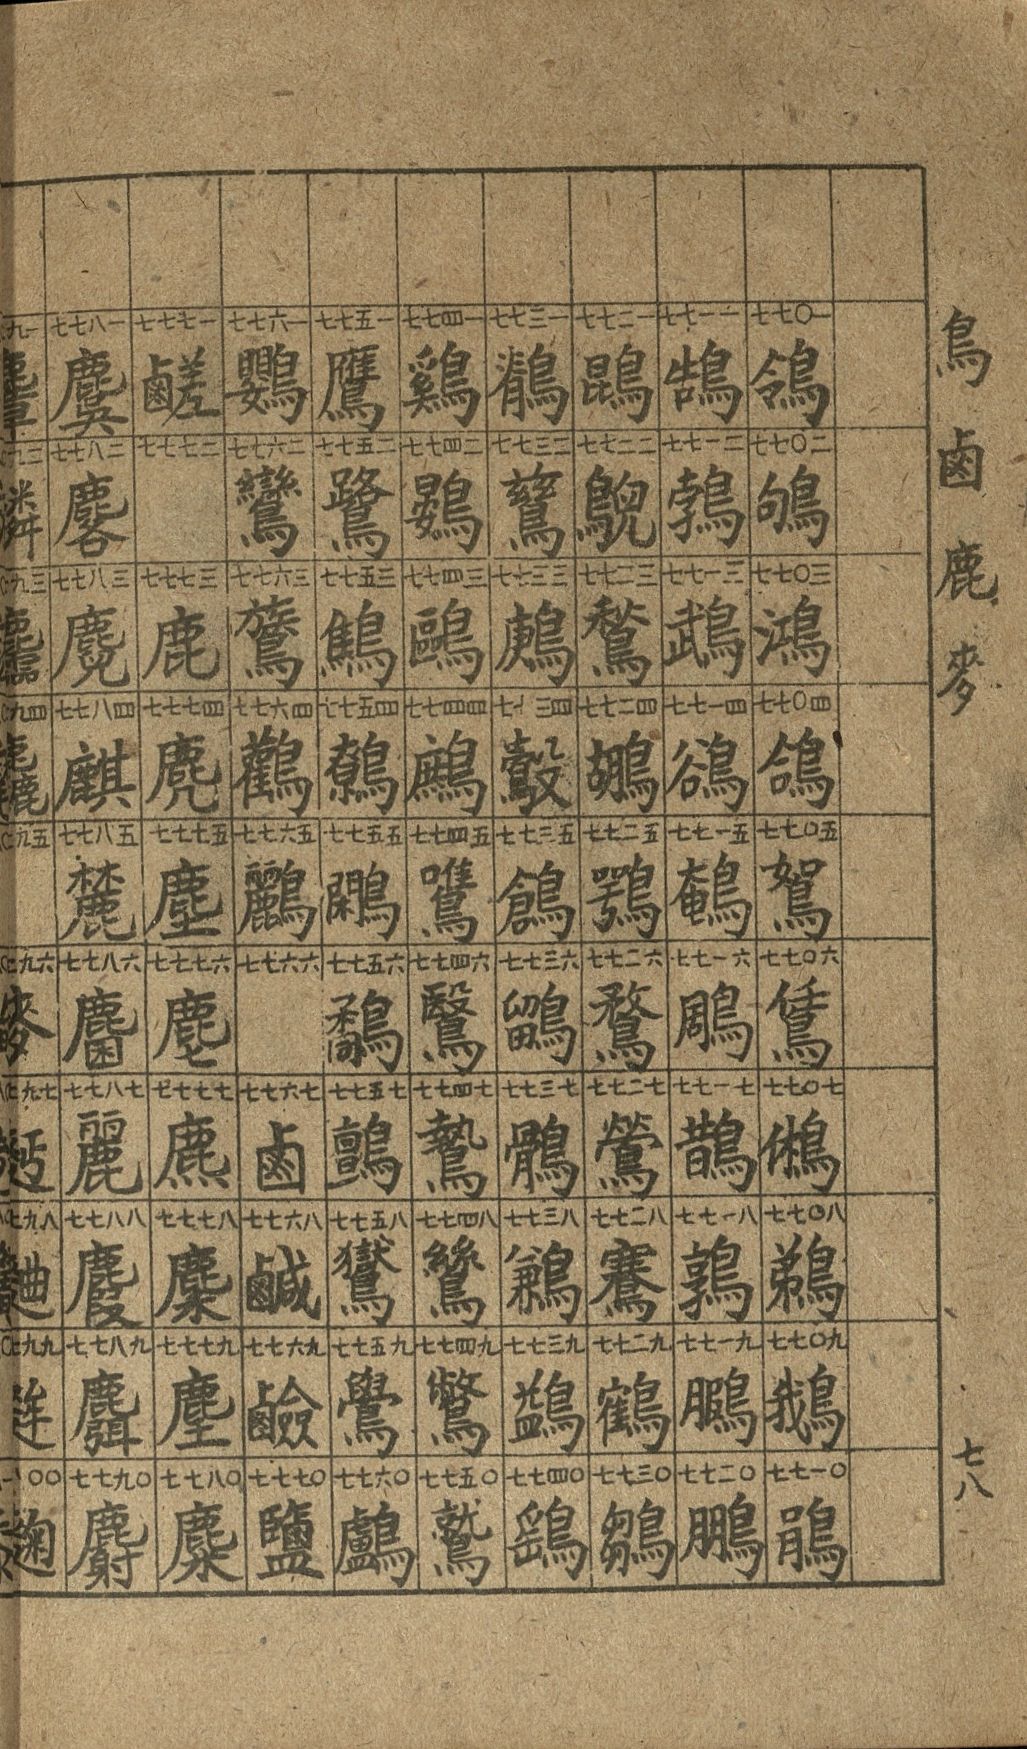 鳥鹵鹿麥
七八
七七〇一 鴒
七七〇二 鴝
七七〇三 鴻
七七〇四 鴿
七七〇五 鴽
七七〇六 鵀
七七〇七 鵂
七七〇八 鵜
七七〇九 鵝
七七一〇 鵑
七七一一 鵠
七七一二 鵓
七七一三 鵡
七七一四 鵒
七七一五 鵪
七七一六 鵰
七七一七 鵲
七七一八 鶉
七七一九 鵩
七七二〇 鵬
七七二一 鵾
七七二二 鶃
七七二三 鶖
七七二四 鶘
七七二五 鶚
七七二六 鶩
七七二七 鶯
七七二八 鶱
七七二九 鶴
七七三〇 鶵
七七三一 鶺
七七三二 鷀
七七三三 鶊
七七三四 鷇
七七三五 鶬
七七三六 鶹
七七三七 鶻
七七三八 鶼
七七三九 鷁
七七四〇 鷂
七七四一 鷄
七七四二 鷃
七七四三 鷗
七七四四 鷓
七七四五 鷕
七七四六 鷖
七七四七 鷙
七七四八 鷥
七七四九 鷩
七七五〇 鷲
七七五一 鷹
七七五二 鷺
七七五三 鷦
七七五四 鷯
七七五五 鷴
七七五六 鷸
七七五七 鸇
七七五八 鸑
七七五九 鷽
七七六〇 鸕
七七六一 鸚
七七六二 鸞
七七六三 鷟
七七六四 鸛
七七六五 鸝
七七六六
七七六七 鹵
七七六八 鹹
七七六九 鹼
七七七〇 鹽
七七七一 鹺
七七七二
七七七三 鹿
七七七四 麂
七七七五
七七七六 麀
七七七七 麃
七七七八
七七七九 麈
七七八〇 麋
七七八一 麌
七七八二
七七八三 麑
七七八四 麒
七七八五 麓
七七八六 麕
七七八七 麗
七七八八 麚
七七八九 麛
七七九〇 麝